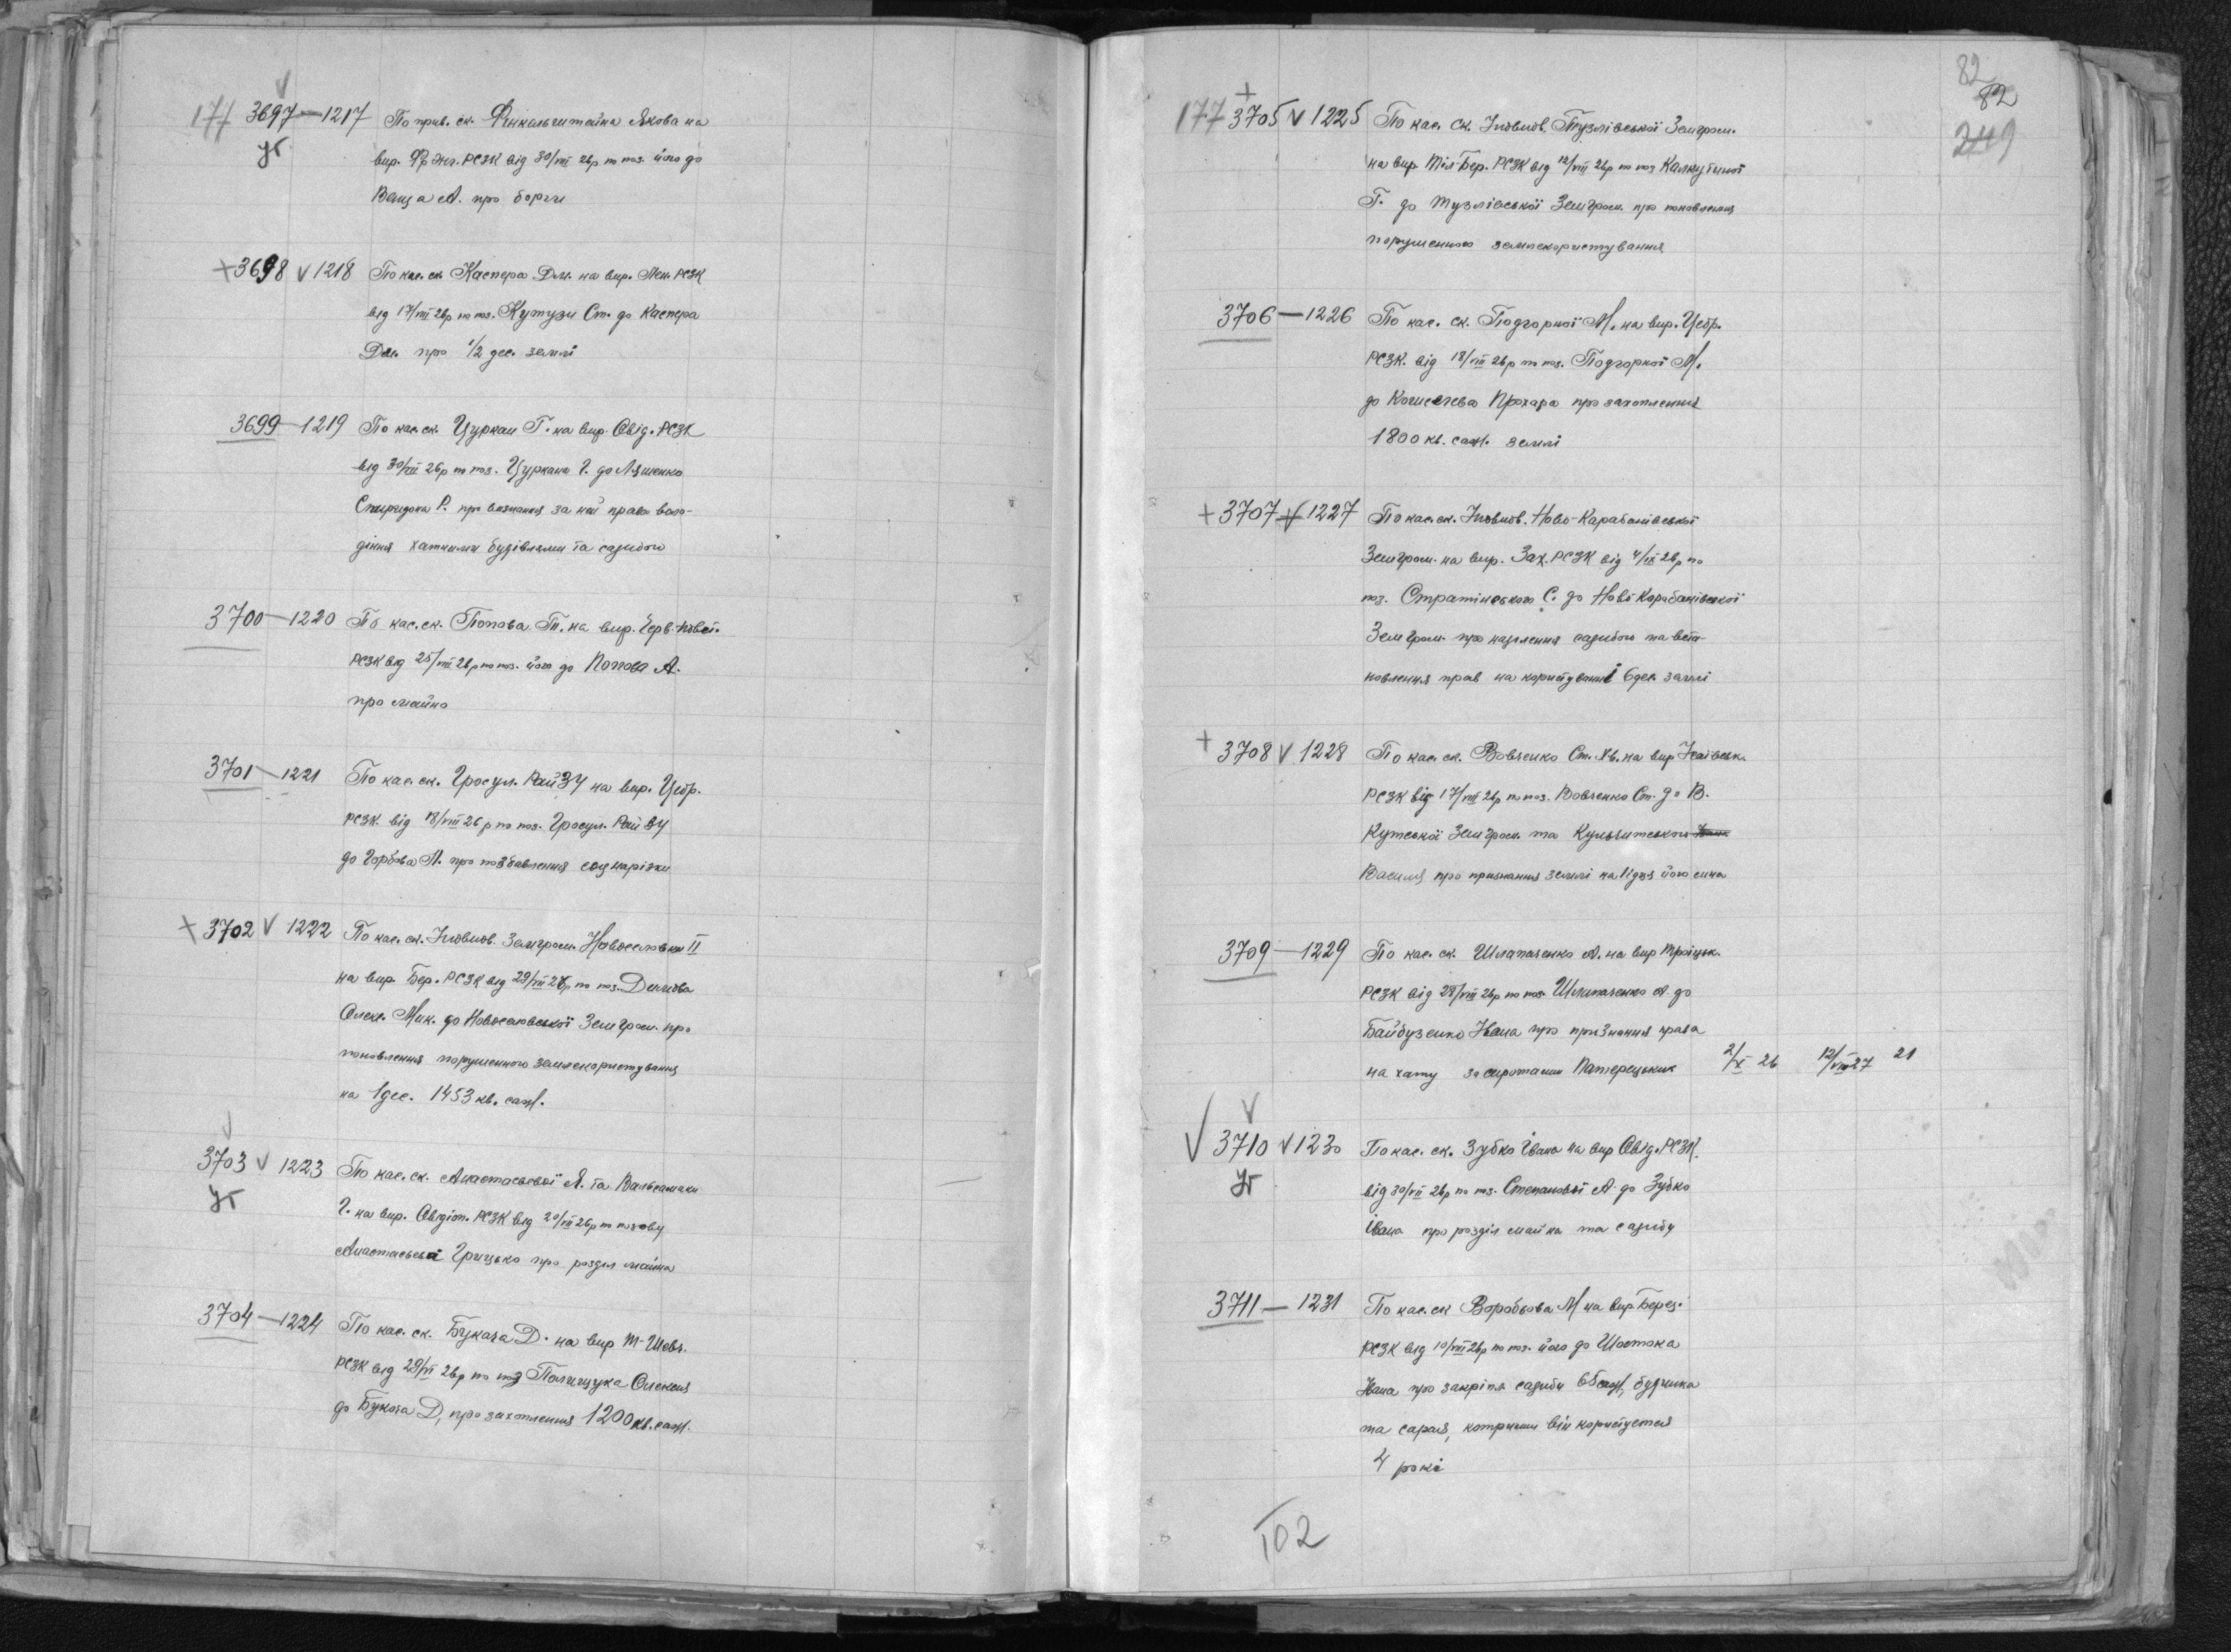 177 3697 — 1217 По прив. ск. Финкельштейна Якова на
вир. Фр Энг. РСЗК від 30/VII 26р по поз. його до
Ваща А. про борги
+ 3698 v 1218 По кас. ск. Каспера Дм. на вир. Лен. РСЗК
від 17/VIII 26р по поз. Кутузи Ст. до Каспера
Дм. про 1/2 дес. землі
3699 — 1219 По кас. ск. Цуркан Г. на вир. Овід. РСЗК
від 30/VII 26р по поз. Цуркана Г. до Ляшенко
Спиридона Р. про визнання за ней права воло-
діння хатними будівлями та садибою
3700 — 1220 По кас. ск. Попова Т. на вир. Черв-Повст.
РСЗК від 25/VIII 26р по поз. його до Попова А.
про майно
3701 — 1221 По кас. ск. Гросул. РайЗУ на вир. Цебр.
РСЗК від 18/VIII 26 р по поз. Гросул. РайЗУ
до Горбова Л. про позбавлення соцнарізки
+ 3702 v 1222 По кас. ск. Уповнов. Земгром. Новоселовки II
на вир. Бер. РСЗК від 29/VII 26р по поз. Демкова
Олекс. Мик. до Новоселовської Земгром. про
поновлення порушенного землекористування
на 1 дес. 1453 кв. саж.
3703 v 1223 По кас. ск. Анастасьєвої Я. та Вальсамаки
Г. на вир. Овідіоп. РСЗК від 20/VII 26р по позову
Анастасьєва Грицько про розділ майна
3704 — 1224 По кас. ск. Букача Д. на вир Т-Шевч.
РСЗК від 29/VI 26р по поз Полищука Олексия
до Букача Д, про захоплення 1200 кв. саж.
82
82
249
177 + 3705 v 1225 По кас. ск. Уповнов. Тузлівської Земгром.
на вир Тіл-Бер. РСЗК від 12/VIII 26р по поз Калкутиної
Г. до Тузлівської Земгром. про поновлення
порушенного землекористування
3706 — 1226 По кас. ск. Подгорної М. на вир. Цебр.
РСЗК. від 18/VIII 26р по поз. Подгорної М.
до Кошелева Прохара про захоплення
1800 кв. саж. землі
+ 3707 v 1227 По кас. ск. Уповнов. Ново-Карабанівської
Земгром. на вир. Зах. РСЗК від 4/IX 26р по
поз. Стратінського С. до Ново Карабанівської
Земгром. про наділення садибою та вста-
новлення прав на користуванні 6 дес. землі
+ 3708 v 1228 По кас. ск. Вовченко Ст. Яв. на вир Ісаївськ.
РСЗК від 17/VIII 26р по поз. Вовченко Ст. до В.
Кутської Земгром. та Кульчитського
Василя про признання землі на 1 душ його сина
3709 — 1229 По кас. ск. Шлапаченко А. на вир Троїцьк.
РСЗК від 28/VIII 26р по поз. Шлапаченко А. до
Байбузенко Івана про признання права
на хату за сиротами Патерецьких 2/X 26 12/VIII 27 21
v 3710 v 1230 По кас. ск. Зубко Івана на вир Овід. РСЗК.
від 30/VII 26р по поз. Степанової А. до Зубко
Івана про розділ майна та садибу
3711 — 1231 По кас. ск Воробьова М на вир Берез.
РСЗК від 10/VIII 26р по поз. його до Шостака
Івана про закріпл. садиби 65 саж, будинка
та сарая, котрими він користуется
4 рокі
102